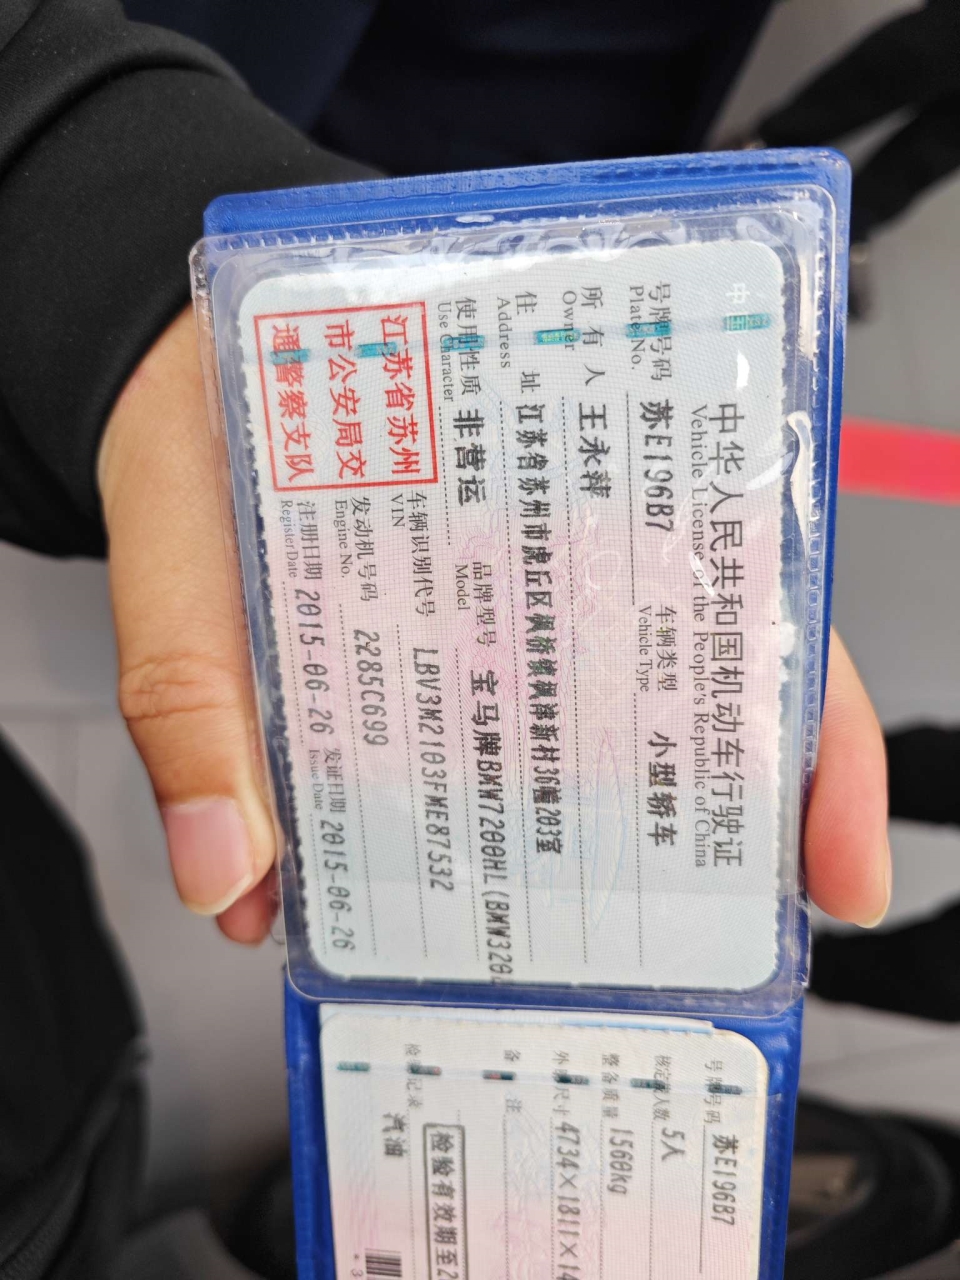 中华人民共和国机动车行驶证
Vehicle License of the People's Republic of China
号牌号码 苏E196B7 车辆类型 小型轿车
Plate No. Vehicle Type
所有人 王永萍
Owner
住址 江苏省苏州市虎丘区枫桥镇枫津新村36幢203室
Address
使用性质 非营运 品牌型号 宝马牌BMW7200HL(BMW320
Use Character Model
江苏省苏州
市公安局交
通警察支队
车辆识别代号 LBV3M2103FME87532
VIN
发动机号码 2285C699
Engine No.
注册日期 2015-06-26 发证日期 2015-06-26
Register Date Issue Date
号牌号码 苏E196B7
核定载人数 5人
整备质量 1560kg
外廓尺寸 4734×1811×14
备注
检验记录
检验有效期至2
汽油